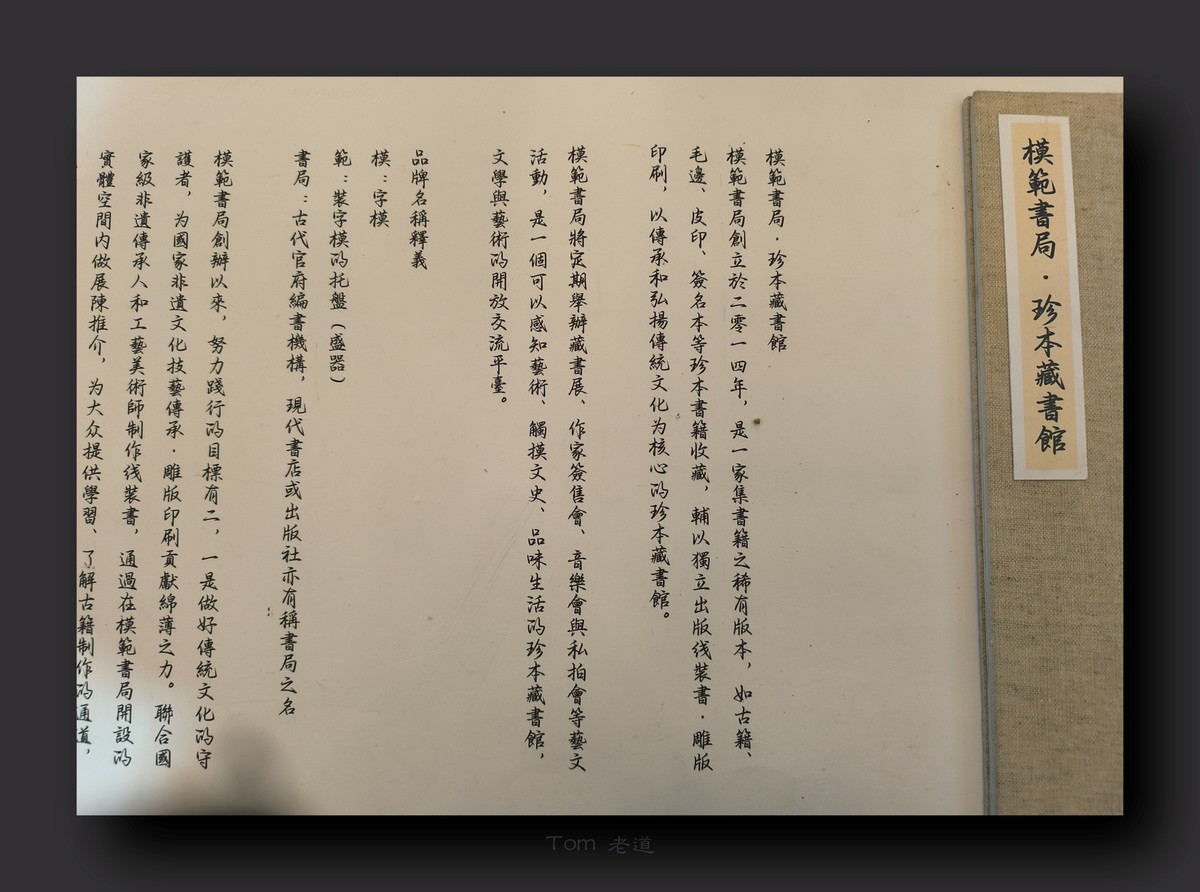 模範書局·珍本藏書館
模範書局·珍本藏書館
模範書局創立於二零一四年，是一家集書籍之稀有版本，如古籍、
毛邊、皮印、簽名本等珍本書籍收藏，輔以獨立出版线裝書·雕版
印刷，以傳承和弘揚傳統文化为核心的珍本藏書館。
模範書局將定期舉辦藏書展、作家簽售會、音樂會與私拍會等藝文
活動，是一個可以感知藝術、觸摸文史、品味生活的珍本藏書館，
文學與藝術的開放交流平臺。
品牌名稱釋義
模：字模
範：裝字模的托盤（盛器）
書局：古代官府編書機構，現代書店或出版社亦有稱書局之名
模範書局創辦以來，努力踐行的目標有二，一是做好傳統文化的守
護者，为國家非遺文化技藝傳承·雕版印刷貢獻綿薄之力。聯合國
家級非遺傳承人和工藝美術師制作线裝書，通過在模範書局開設的
實體空間内做展陳推介，为大众提供學習、了解古籍制作的通道，
Tom 老道